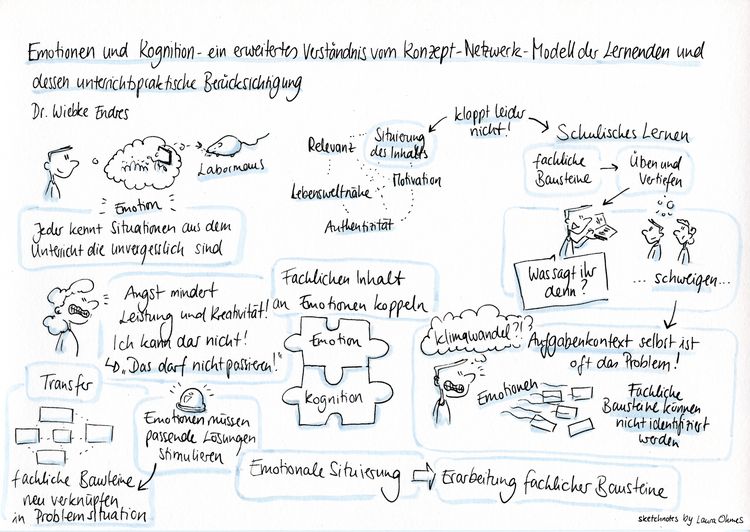 Emotionen und Kognition - ein erweitertes Verständnis vom Konzept-Netzwerk-Modell der Lernenden und
dessen unterrichtspraktische Berücksichtigung
Dr. Wiebke Endres
Labormaus
Emotion
Jeder kennt Situationen aus dem
Unterricht die unvergesslich sind
Relevanz
Situierung
des Inhalts
Motivation
Lebensweltnähe
Authentizität
klappt leider
nicht!
Schulisches Lernen
fachliche
Bausteine
Üben und
Vertiefen
Was sagt ihr
denn?
... schweigen...
Angst mindert
Leistung und Kreativität!
Ich kann das nicht!
↳ „Das darf nicht passieren!"
Fachlichen Inhalt
an Emotionen koppeln
Emotion
Kognition
Klimawandel?!?
Aufgabenkontext selbst ist
oft das Problem!
Emotionen
Fachliche
Bausteine können
nicht identifiziert
werden
Transfer
Emotionen müssen
passende Lösungen
stimulieren
fachliche Bausteine
neu verknüpfen
in Problemsituation
Emotionale Situierung ⇨ Erarbeitung fachlicher Bausteine
sketchnotes by Laura Ohmes